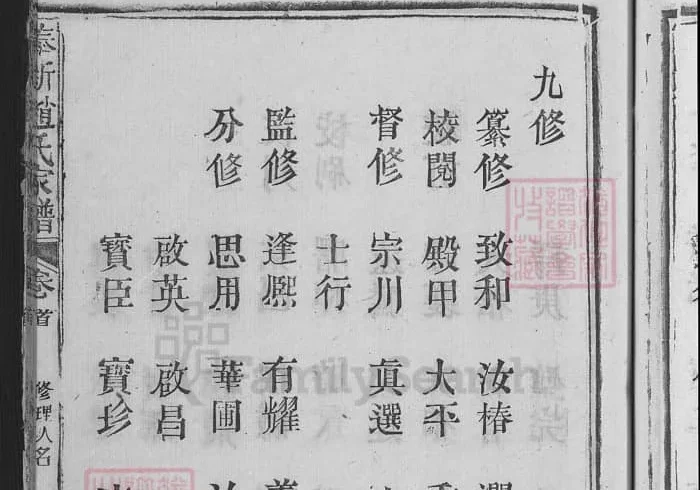 九修
纂修 致和 汝椿
校閱 殿甲 大平
督修 宗川 眞選
士行
監修 逢熈 有耀
分修 思用 華圃
啟英 啟昌
寳臣 寳珍
奉新趙氏家譜 卷首 修理人名
FamilySearch